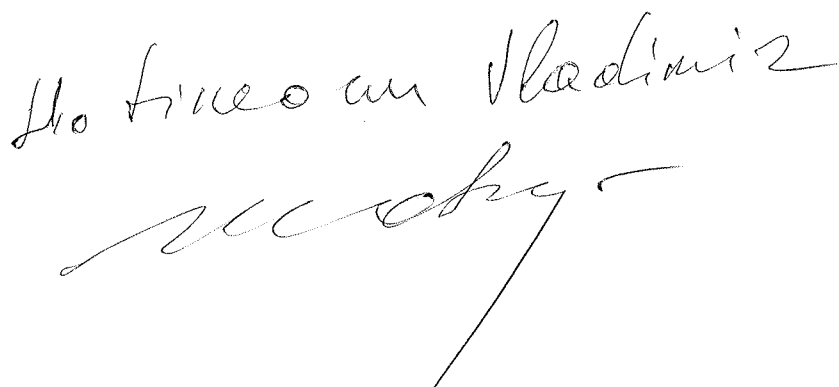 Hotineanu Vladimir